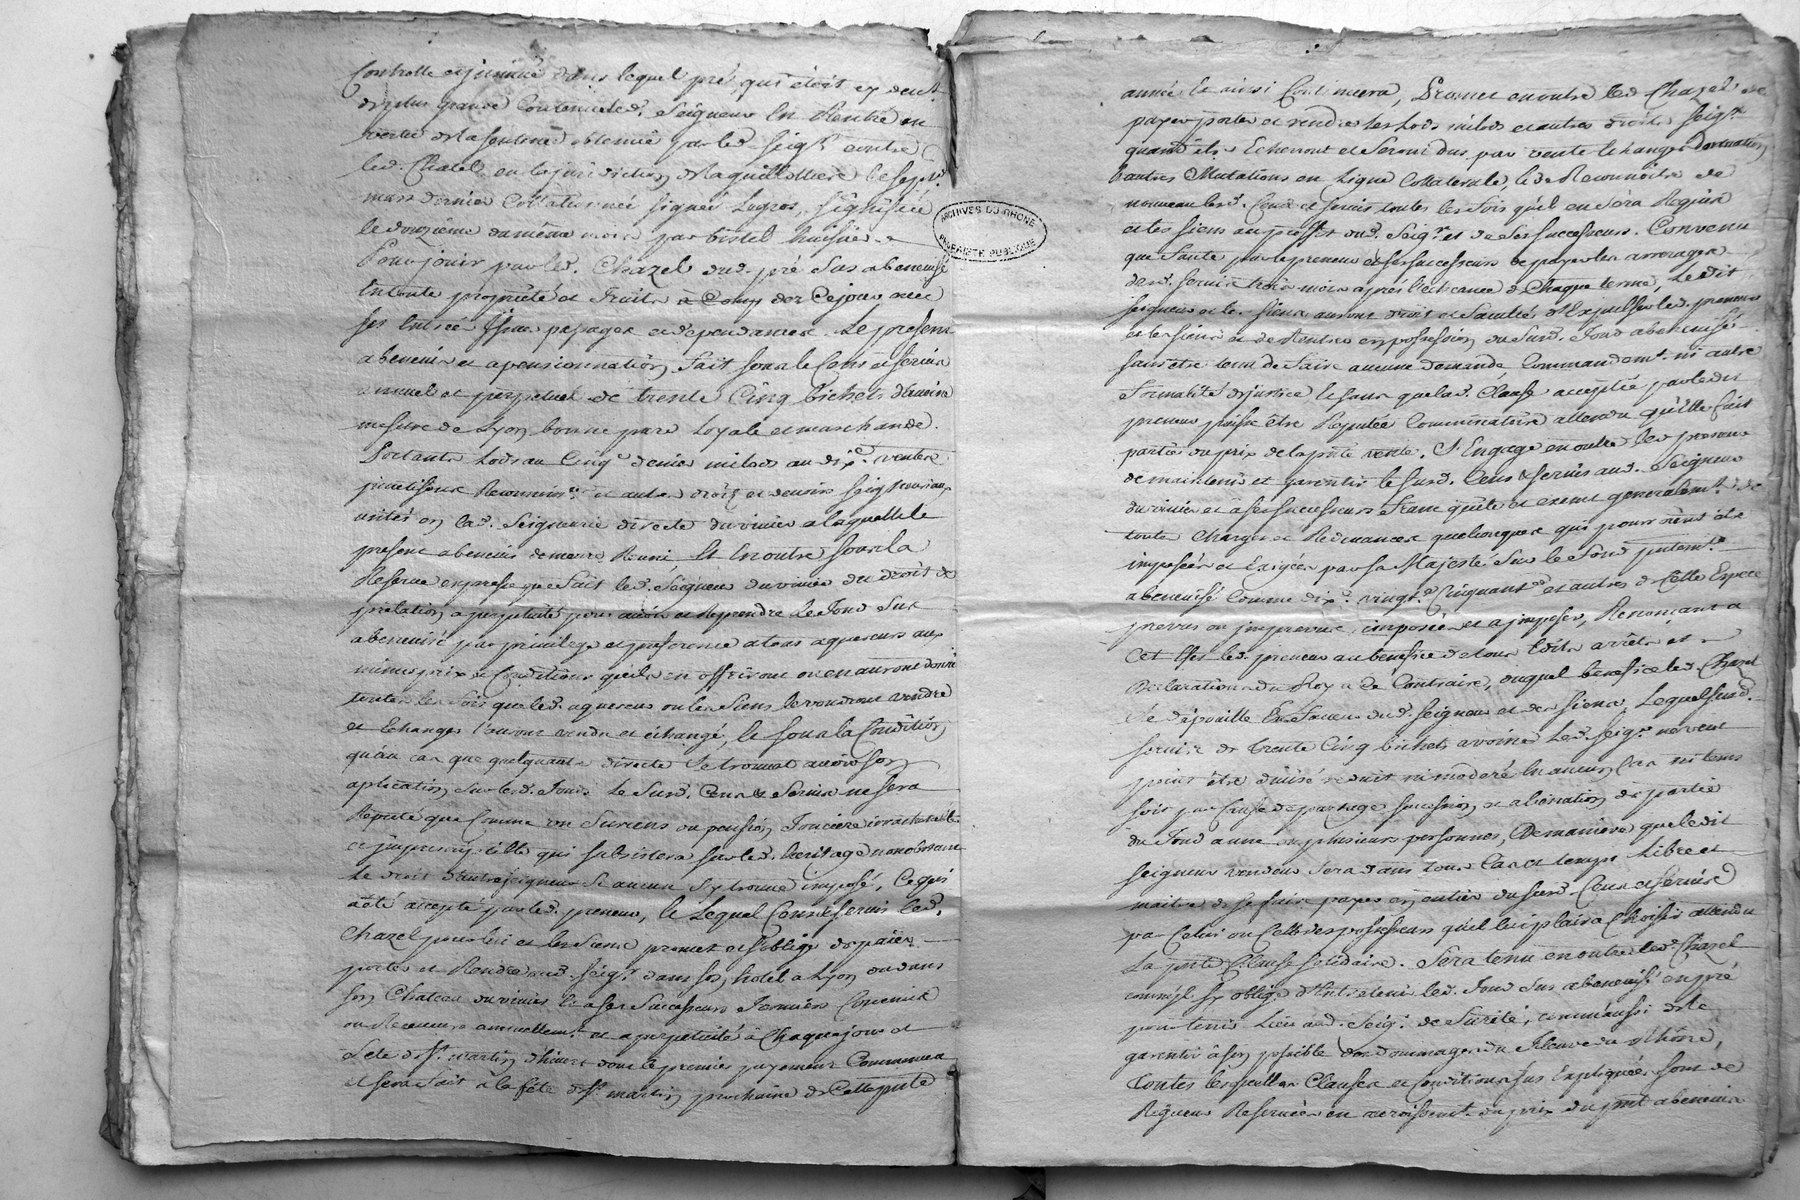 Controllé et insinué dans lequel pré, qui étoit cy devt
de plus grande Contenue led. Seigneur En Rentré en
vertu de la sentence obtenue par led. Seigr. contre
led. Chazel en la jurisdiction de la guillottiere le sept
mars dernier Collationnée signée Legros, signifiée
le douzieme du même mois par bistel huissier
Pour jouir par led. Chazel dud. pré Sus abenevisé
En toute propriété et Fruits à Comp. de Cejour avec
ses Entrée Issue passages et dépendances. Le present
abenevis et apensionnation fait sous le Cens et servis
annuel et perpetuel de trente Cinq bichets d'avoine
mesure de Lyon bonne pure Loyale et marchande.
Portants Lods au Cinqe denier milods au dixe. ventes
Reconnoince. et autres droits et devoirs seigneuriaux
usités en lad. Seigneurie directe duvivier a laquelle le
present abenevis demeure Reuni, Et En outre sous la
Reserve expresse que fait led. Seigneur duvivier du droit de
prelation a perpetuité pour avoir et Reprendre le Fond Sus
abenevisé par privilege et preference a tous aquereurs aux
mêmes prix et Conditions qu'ils en offriront ou en auront donné
toutes les fois que led. aquereur ou les Siens le voudront vendre
et Echanger l'auront vendu et échangé, Et sous la Condition
qu'au cas que quelqu'autre directe Se trouvat avoir son
aplication sur led. Fonds le Susd. Cens & Servis ne sera
Réputé que Comme un Surcens ou pension Fonciere irrachetable
et imprescriptible qui subsistera sur led. heritage nonobstant
Le droit d'autre seigneur Si aucun S'y trouve imposé, Ce qui
a été accepté par led. preneur, Et Lequel Cens & servis led.
Chazel pour lui et les Siens promet et s'oblige de paier
porter et Rendre aud. Seigr. dans son hotel a Lyon ou dans
son Chateau duvivier Et a ses Successeurs Fermiers Commis
ou Receveurs annuellemt. et a perpetuité à Chaque jour et
Fete de St. martin d'hiver dont le premier payement Commencera
et sera fait à la fête de St. martin prochaine de Cette pnte
ARCHIVES DU RHONE
PROPRIETE PUBLIQUE
année Et ainsi Continuera, Promet en outre led. Chazel de
payer porter et rendre les Lods milods et autres droits seigrx
quand ils Echerront et Seront dus par vente Echanges donnation
& autres Mutations en Ligne Collaterale, & de Reconnoitre de
nouveau lesd. Cens et servis toutes les Fois qu'il en Sera Requis
et les siens au proffit dud. Seigr. et de Ses successeurs. Convenu
que faute par le preneur et ses successeurs de payer les arrerages
desd. Servis trois mois après l'echeance de Chaque terme, Le dit
seigneur et les Siens auront droit et Faculté d'Expulser led. preneur
et les siens et de Rentrer en possession du Susd. Fond abenevisé
sans etre tenu de Faire aucune demande Commandemt. ni autre
Formalité de justice Et sans que lad. Clause acceptée par ledit
preneur puisse être Reputée Comminatoire attendu qu'Elle fait
parties du prix de la pnte vente. S'Engage en outre led. preneur
de maintenir et garentir le Susd. Cens & servis aud. Seigneur
duvivier et à ses successeurs Franc quitte et exemt generalemt. de
toute Charges et Redevances quelconques qui pourroient être
imposées et Exigées par Sa Majesté Sur le Fond putemt.
abenevisé Comme dixe. vingte. Cinquante. et autres de Cette Espece
prevus ou imprevus, imposés et a imposer, Renonçant a
Cet Effet led. preneur au benefice de tous Edits arrêts et
Déclarations du Roy a Ce Contraire, duquel benefice led. Chazel
Se dépouille En Faveur dud. Seigneur et des siens, Lequel susd.
servis de Trente Cinq bichets avoine led. Seigr. ne veut
point être divisé reduit ni moderé En aucun Cas ni tems
soit par Cause de partage succession et alienation de partie
du Fond a une ou plusieurs personnes, De maniere que ledit
seigneur vendeur Sera dans tous Cas et temps Libre et
maitre de se faire payer en entier du susd. Cens et servis
par Celui ou Celle des possesseurs qu'il lui plaira Choisir attendu
La pnte Clause solidaire. Sera tenu en outre led. Chazel,
comme il s'y oblige d'Entretenir led. Fond Sus abenevisé en pré
pour tenir Lieu aud. Seigr. de Sureté, comme aussi de le
garentir à son possible des dommages du Fleuve du Rhône,
Toutes lesquelles Clauses et Conditions sus Expliquées sont de
Rigueur Reservées en accroissemt. du prix du pnt abenevis